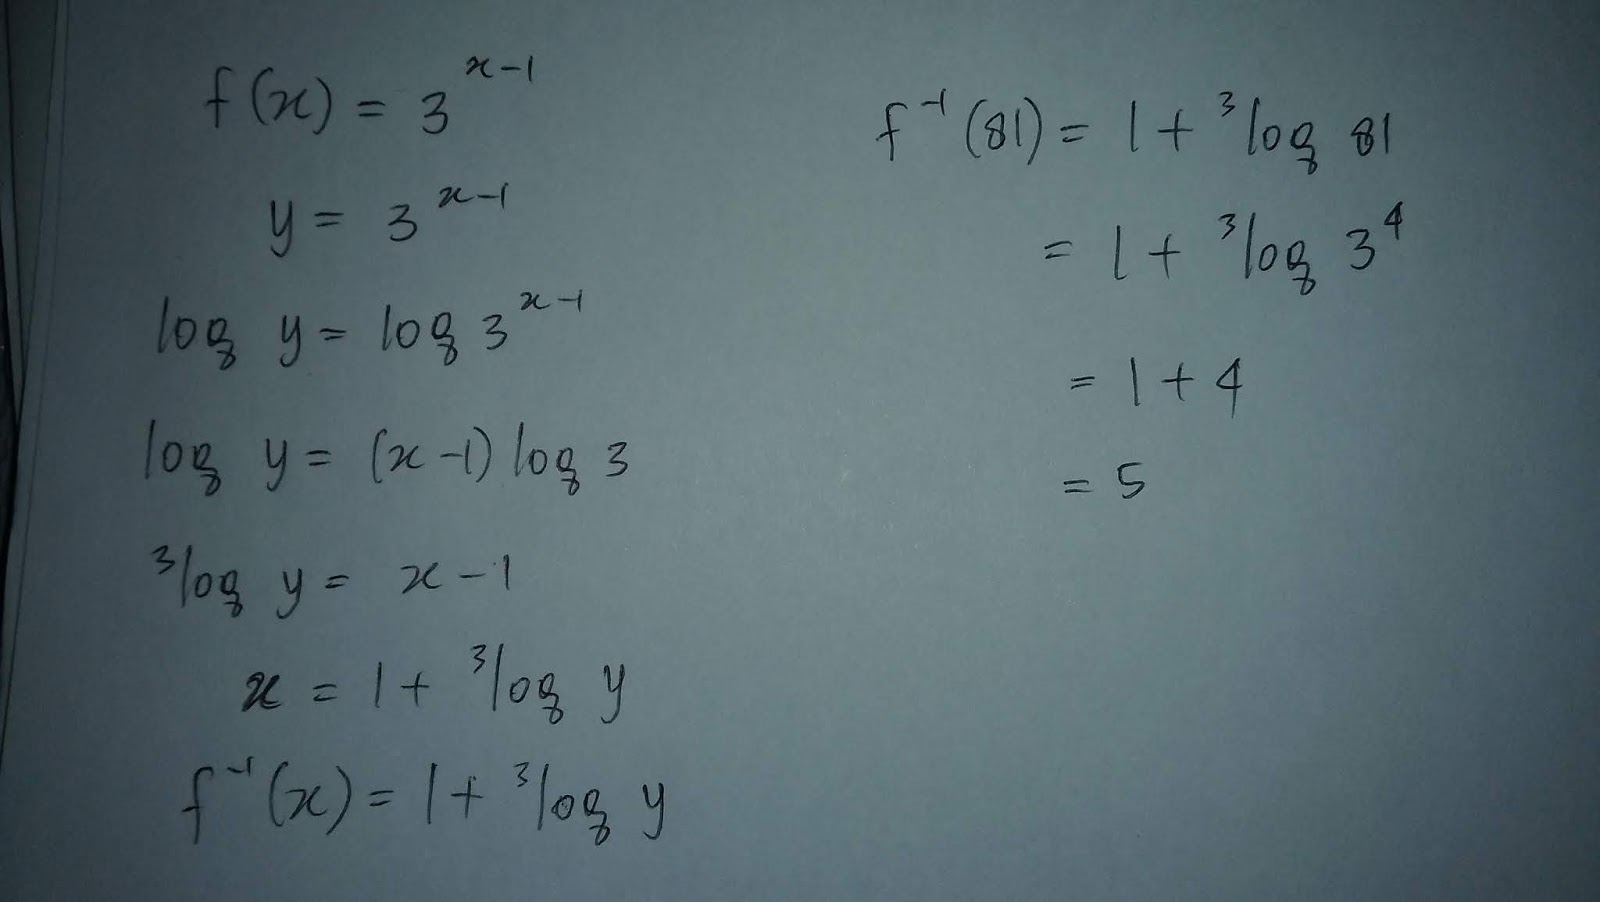 f(x) = 3^{x-1}
y = 3^{x-1}
log y = log 3^{x-1}
log y = (x-1) log 3
³log y = x-1
x = 1 + ³log y
f⁻¹(x) = 1 + ³log y
f⁻¹(81) = 1 + ³log 81
= 1 + ³log 3⁴
= 1 + 4
= 5